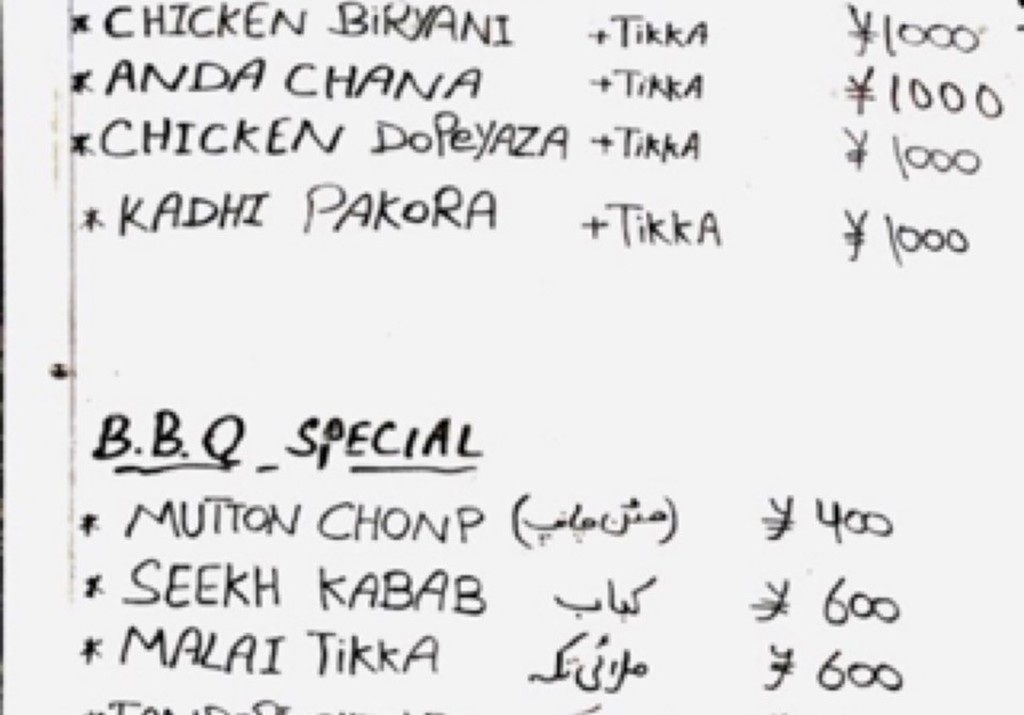 * CHICKEN BiRYANI +TikkA ¥1000
* ANDA CHANA +TikkA ¥1000
* CHICKEN DoPeYAZA +TikkA ¥1000
* KADHI PAKoRA +TikkA ¥1000
B.B.Q_SPECIAL
* MUTTON CHONP (مٹن چانپ) ¥400
* SEEKH KABAB کباب ¥600
* MALAI TikkA ملائی تکہ ¥600